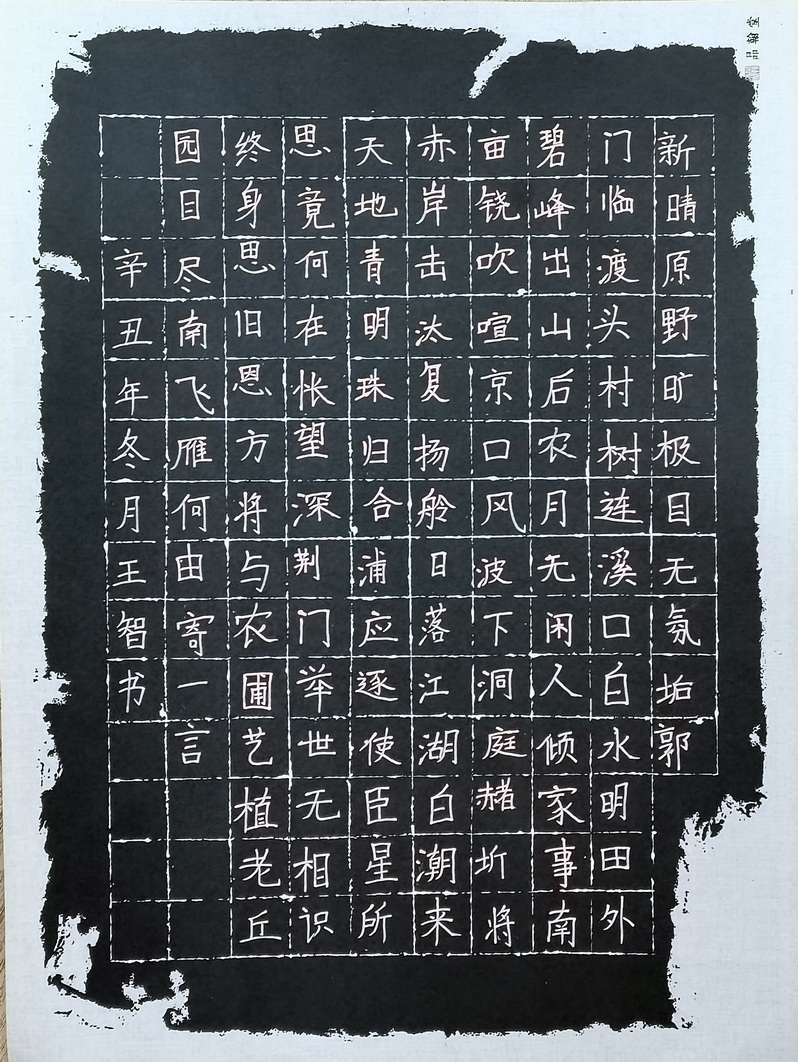 新晴原野旷极目无氛垢郭
门临渡头村树连溪口白水明田外
碧峰出山后农月无闲人倾家事南
亩铙吹喧京口风波下洞庭赭圻将
赤岸击汰复扬舲日落江湖白潮来
天地青明珠归合浦应逐使臣星所
思竟何在怅望深荆门举世无相识
终身思旧恩方将与农圃艺植老丘
园目尽南飞雁何由寄一言
辛丑年冬月王智书